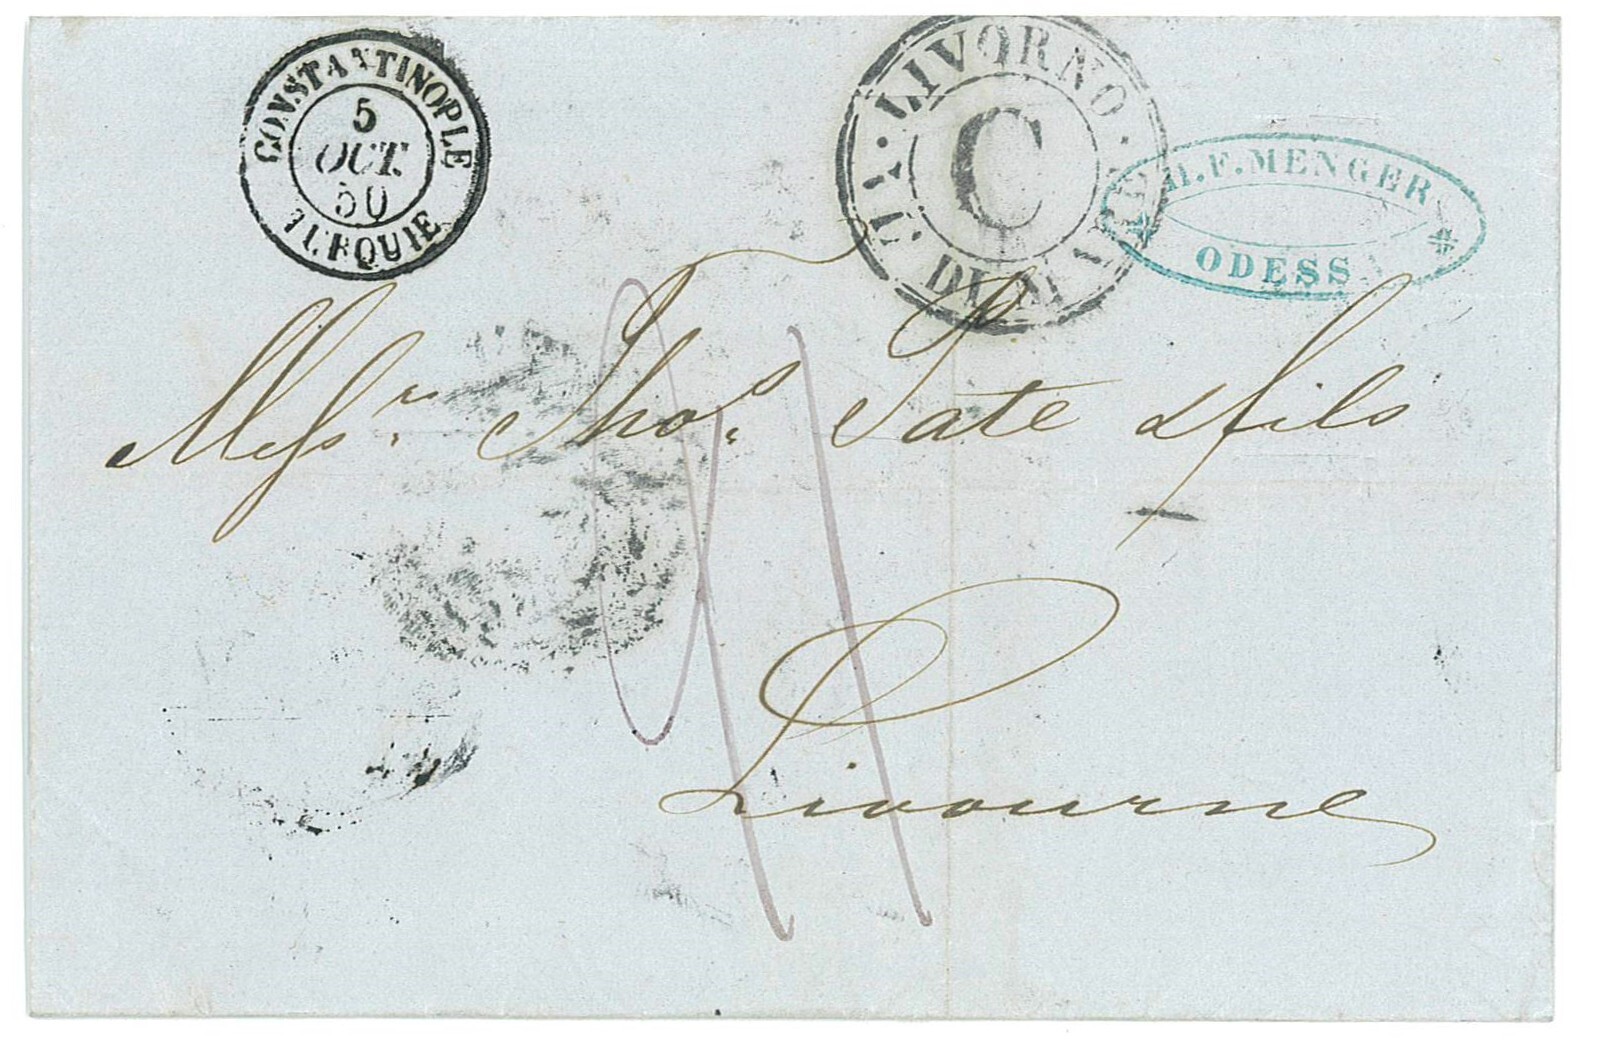 CONSTANTINOPLE
5
OCT.
50
TURQUIE
LIVORNO
C
H.F. MENGER
ODESSA
Messrs. Thos. Pate & fils
Livourne